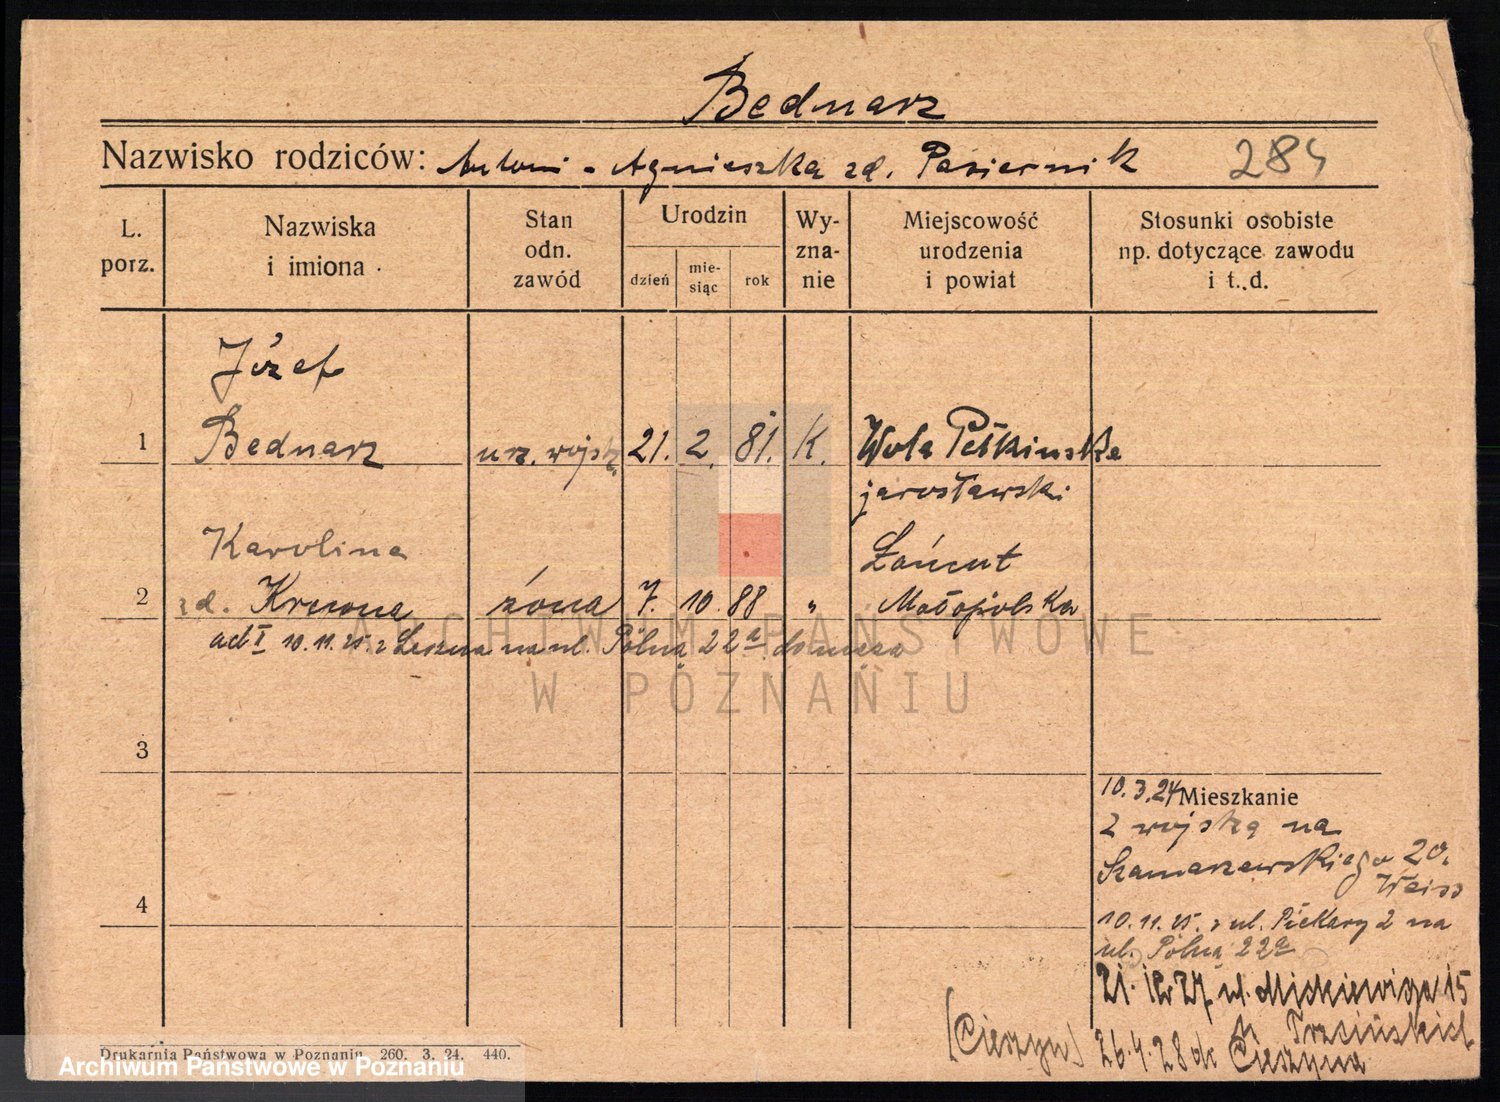 Bednarz
Nazwisko rodziców: Antoni - Agnieszka zd. Pasiernik 284
L. porz.
Nazwiska i imiona
Stan odn. zawód
Urodzin
dzień
mie-siąc
rok
Wy-zna-nie
Miejscowość urodzenia i powiat
Stosunki osobiste np. dotyczące zawodu i t. d.
Józef
1 Bednarz urz. wojsk. 21. 2. 81. K. Wola Pełkinska
jarosławski
Karolina Łańcut
2 zd. żona 7. 10. 88 " Małopolska
ad I 10.11.25. z Leszna na ul. Polną 22a
3
10.3.24 Mieszkanie
z wojską na
Szamarzewskiego 20.
Weiss
4
10.11.25. z ul. Piekary 2 na
ul. Polną 22a
21. 12 27 ul. Mickiewicza 15
Trzciński
(Cieszyn) 26.4.28 do Cieszyna
Drukarnia Państwowa w Poznaniu 260. 3. 24. 440.
ARCHIWUM PAŃSTWOWE
W POZNANIU
Archiwum Państwowe w Poznaniu